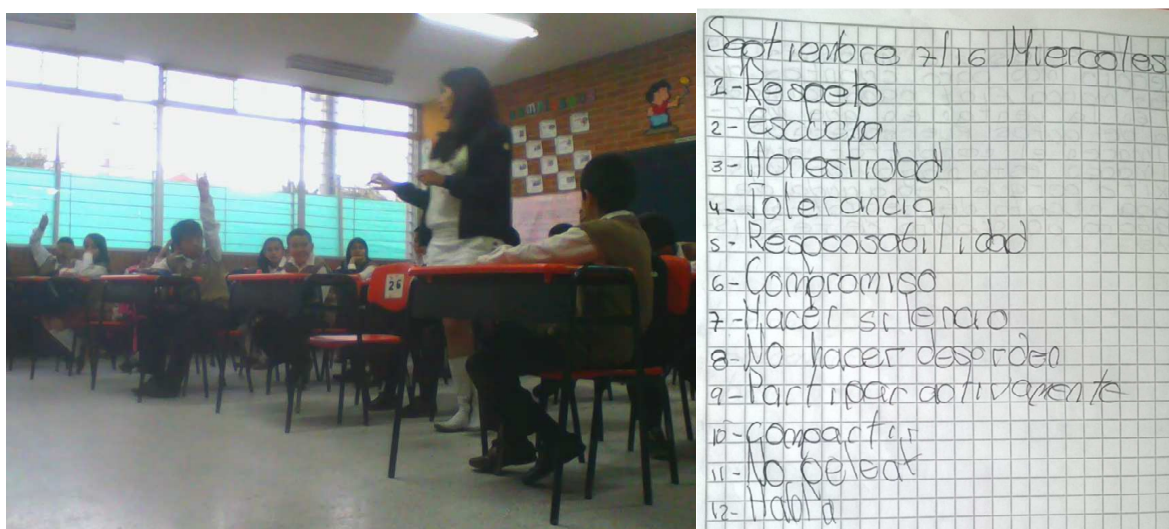 26
Septiembre 7/16 Miercoles
1-Respeto
2-Escucha
3-Honestidad
4-Tolerancia
5-Responsabilidad
6-Compromiso
7-Hacer silencio
8-No hacer desorden
9-Participar activamente
10-Compartir
11-No pelear
12-Habla